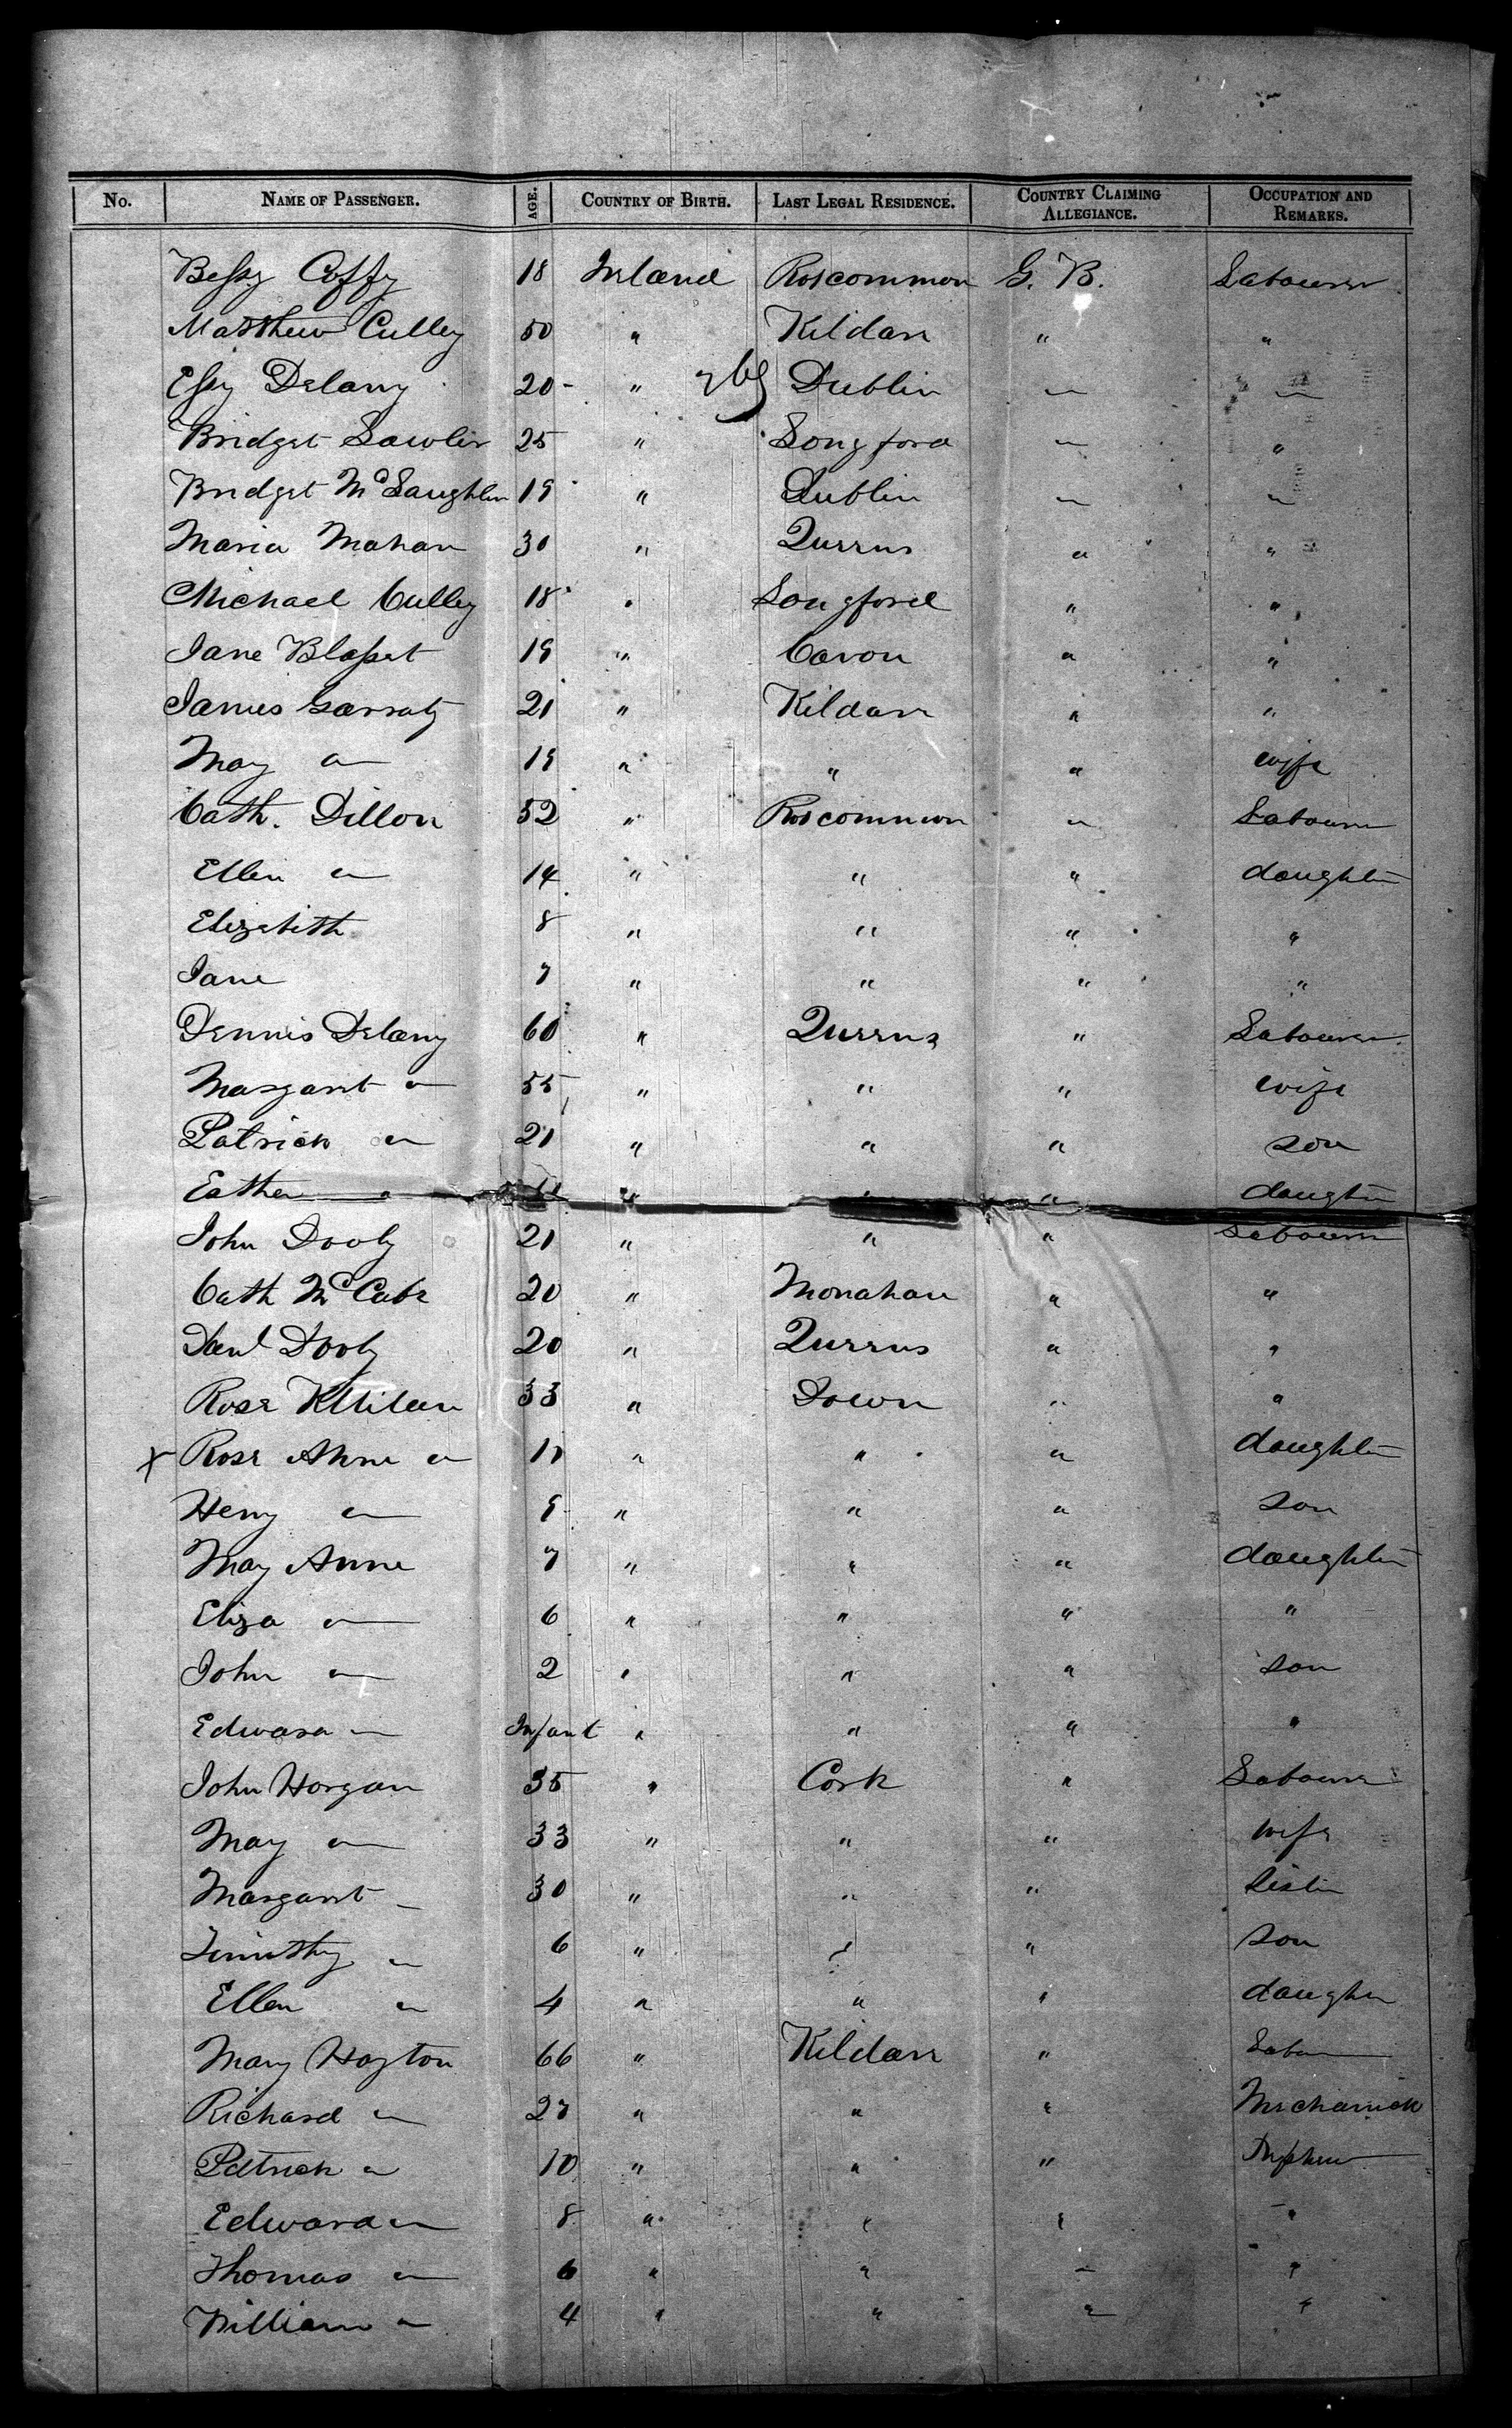 No. NAME OF PASSENGER. AGE. COUNTRY OF BIRTH. LAST LEGAL RESIDENCE. COUNTRY CLAIMING ALLEGIANCE. OCCUPATION AND REMARKS.
Bessy Coffy 18 Ireland Roscommon G. B. Labourer
Matthew Culley 50 " Kildare " "
Essy Delany 20 " Dublin " "
Bridget Lawler 25 " Longford " "
Bridget McLaughlin 19 " Dublin " "
Maria Mahan 30 " Queens " "
Michael Culley 18 " Longford " "
Jane Blasset 19 " Cavon " "
James Garraty 21 " Kildare " "
Mary " 19 " " " wife
Cath. Dillon 52 " Roscommon " Labourer
Ellen " 14 " " " daughter
Elizabeth 8 " " " "
Jane 7 " " " "
Dennis Delany 60 " Queens " Labourer
Margaret " 55 " " " wife
Patrick " 21 " " " son
Esther " " " " daughter
John Dooly 21 " " " Labourer
Cath McCabe 20 " Monahan " "
Danl Dooly 20 " Queens " "
Rose 33 " Down " "
x Rose Anne " 11 " " " daughter
Henry " 9 " " " son
Mary Anne 7 " " " daughter
Eliza " 6 " " " "
John " 2 " " " son
Edward " Infant " " " "
John Horgan 35 " Cork " Labourer
Mary " 33 " " " wife
Margaret " 30 " " " sister
Timothy " 6 " " " son
Ellen " 4 " " " daughter
Mary Hayton 66 " Kildare " Labourer
Richard " 27 " " " Mechanick
Patrick " 10 " " " Nephew
Edward " 8 " " " "
Thomas " 6 " " " "
William " 4 " " " "